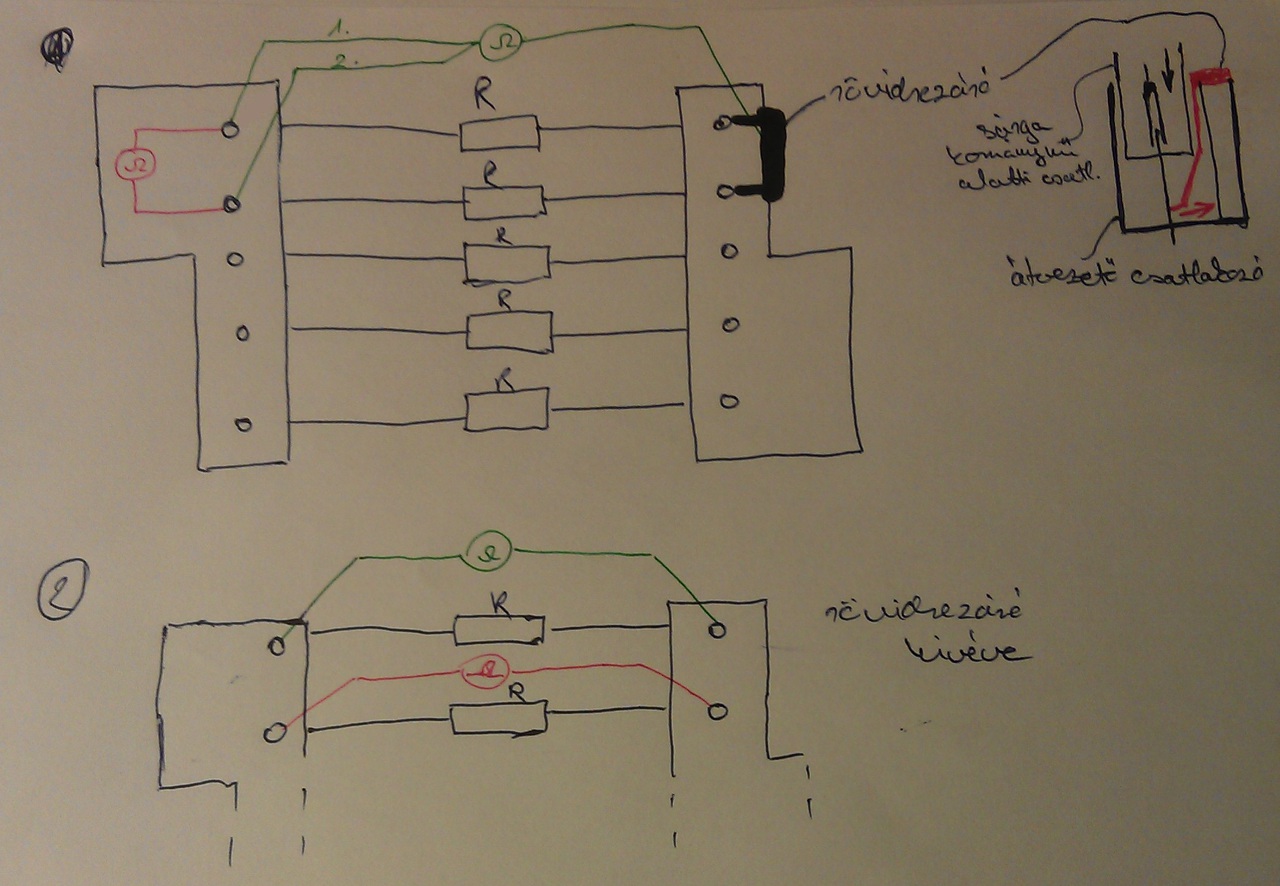 1.
Ω
2.
R
rövidrezáró
Ω
R
R
R
R
sárga
kormány
alatti csatl.
átvezető csatlakozó
2
Ω
R
Ω
R
rövidrezáró
kivéve